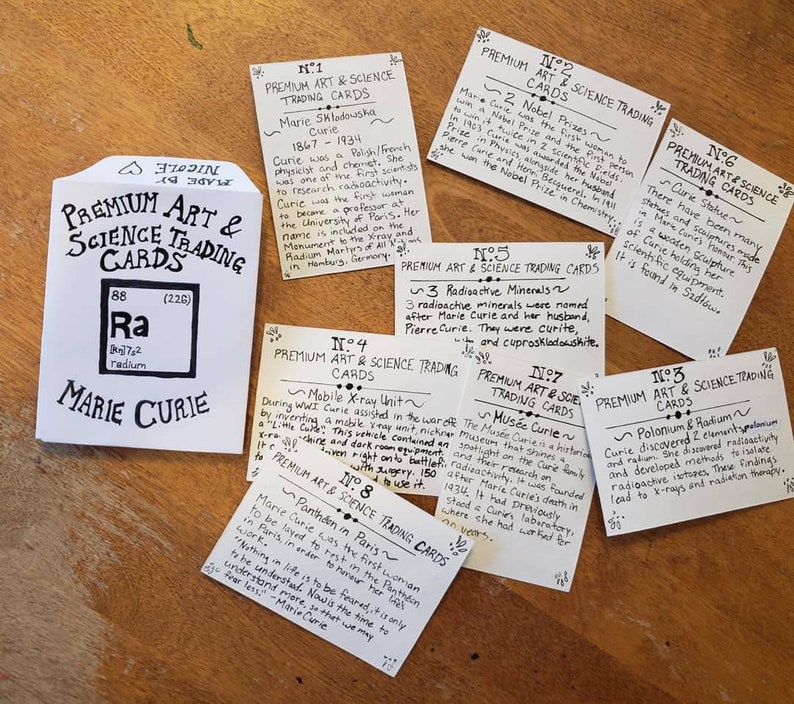 MADE BY
NICOLE ♡
PREMIUM ART &
SCIENCE TRADING
CARDS
88 (226)
Ra
[Rn]7s2
radium
MARIE CURIE
Nº1
PREMIUM ART & SCIENCE
TRADING CARDS
Marie Skłodowska
Curie
1867 - 1934
Curie was a Polish/French
physicist and chemist. She
was one of the first scientists
to research radioactivity.
Curie was the first woman
to become a professor at
the University of Paris. Her
name is included on the
Monument to the X-ray and
Radium Martyrs of All Nations
in Hamburg, Germany.
Nº2
PREMIUM ART & SCIENCE TRADING
CARDS
~ 2 Nobel Prizes ~
Marie Curie was the first woman to
win a Nobel Prize and the first person
to win it twice in 2 scientific fields.
In 1903 Curie was awarded the Nobel
Prize in Physics alongside her husband
Pierre Curie and Henri Becquerel. In 1911
she won the Nobel Prize in Chemistry.
Nº6
PREMIUM ART & SCIENCE
TRADING CARDS
~ Curie Statue ~
There have been many
statues and sculptures made
in Marie Curie's honour. This
is a wooden sculpture
of Curie holding her
scientific equipment.
It is found in Szdłów.
Nº5
PREMIUM ART & SCIENCE TRADING CARDS
~ 3 Radioactive Minerals ~
3 radioactive minerals were named
after Marie Curie and her husband,
Pierre Curie. They were curite,
and cuprosklodowskite.
Nº4
PREMIUM ART & SCIENCE TRADING
CARDS
~ Mobile X-ray Unit ~
During WWI Curie assisted in the war eff
by inventing a mobile x-ray unit, nickna
a "Little Curie". This vehicle contained an
x-ra chine and dark room equipment.
It riven right onto battlefi
to with surgery. 150
d to use it.
Nº7
PREMIUM ART & SCIENCE
TRADING CARDS
~ Musée Curie ~
The Musée Curie is a historical
museum that shines a
spotlight on the Curie family
and their research on
radioactivity. It was founded
after Marie Curie's death in
1934. It had previously
stood a Curie's laboratory,
where she had worked for
20 years.
Nº3
PREMIUM ART & SCIENCE TRADING
CARDS
~ Polonium & Radium ~
Curie discovered 2 elements, polonium
and radium. She discovered radioactivity
and developed methods to isolate
radioactive isotopes. These findings
lead to x-rays and radiation therapy.
Nº8
PREMIUM ART & SCIENCE TRADING CARDS
~ Panthéon in Paris ~
Marie Curie was the first woman
to be layed to rest in the Panthéon
in Paris, in order to honour her life's
work.
"Nothing in life is to be feared, it is only
to be understood. Now is the time to
understand more, so that we may
fear less." - Marie Curie